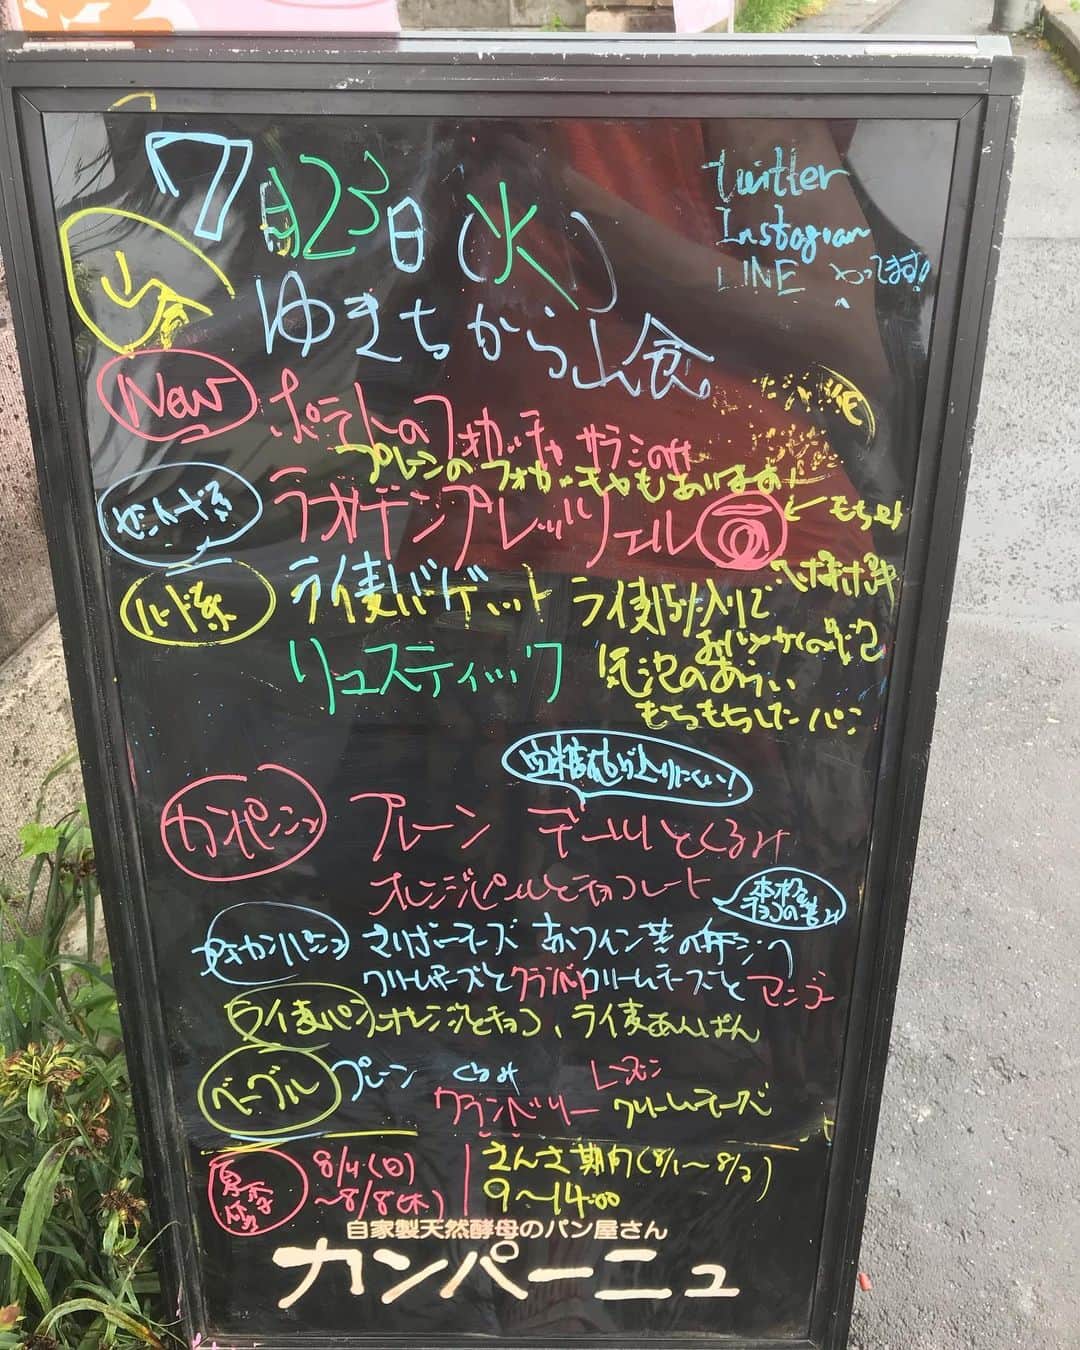 7月23日(火)
twitter
Instagram
LINE やってます!
山食
ゆきちから山食
New
ポテトのフォカッチャ サラミのせ
プレーンのフォカッチャもあります
ラオゲンプレッツェル
← もちもち
ハード系
ライ麦バゲット
ライ麦15%入りで
リュスティック
気泡のあらい
もちもちしたパン
血糖値が上りにくい!
カンパーニュ
プレーン デーツといとくるみ
オレンジピールとチョコレート
本格
チョコの苦み
カンパーニュ
クリームチーズとクランベリー クリームチーズとマンゴー
ライ麦パン オレンジとチョコ、ライ麦あんぱん
ベーグル
プレーン くるみ レーズン
クランベリー クリームチーズ
8/4(日)
～8/8(木)
さんさ期間(8/1～8/3)
9～14:00
自家製天然酵母のパン屋さん
カンパーニュ